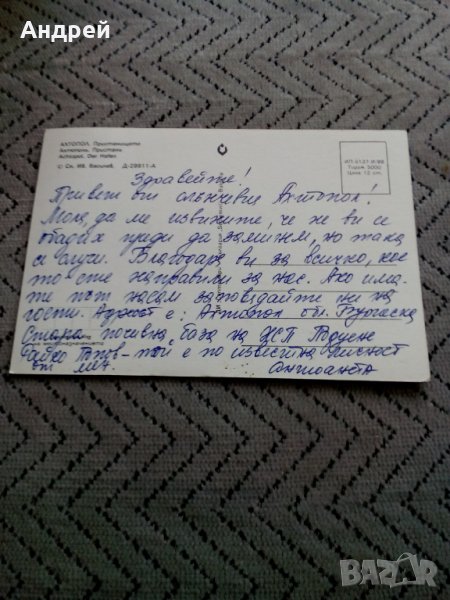 Андрей
АХТОПОЛ. Пристанището
Ахтополь. Пристань
Achtopol. Der Hafen
© Сн. Ив. Василев Д-29811-А
Тираж 5000
Цена 12 ст.
Здравейте!
Привет от слънчевия Ахтопол!
Моля, да ме извините, че не ви се
обадих преди да замина, но така
се случи. Благодаря ви за всичко, кое
то сте направили за нас. Ако има
те път насам заповядайте ни на
гости. Адрест е: Ахтопол обл. Бургаска
Стара почивна база на
е по известна
BAZAR